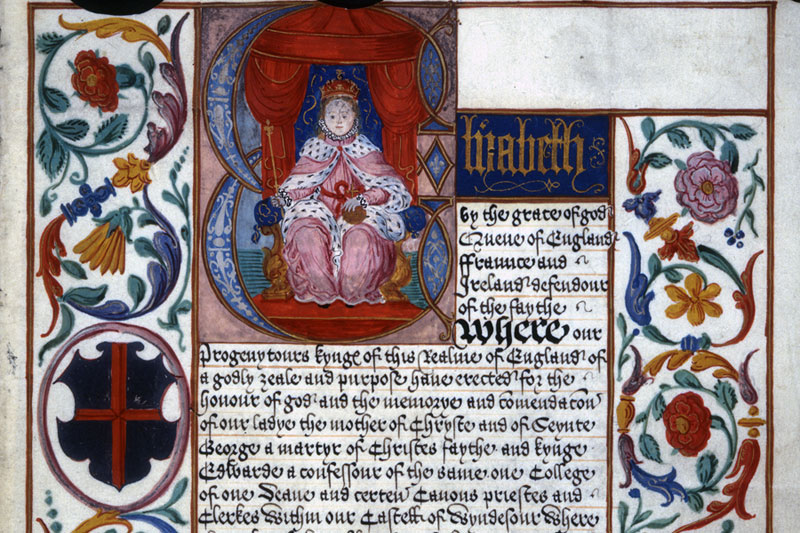 Elizabeth
by the grace of god
Quene of England
ffraunce and
Ireland defendour
of the faythe
Where our
Progenytours kynge of this Realme of England of
a godly zeale and purpose have erected for the
honour of god and the memorye and comendacon
of our ladye the mother of Chryste and of Seynte
George a martyr of Christes faythe and kynge
Edwarde a confessour of the same one College
of one Deane and certen Canons priestes and
Clerkes within our Castell of Wyndesour Where